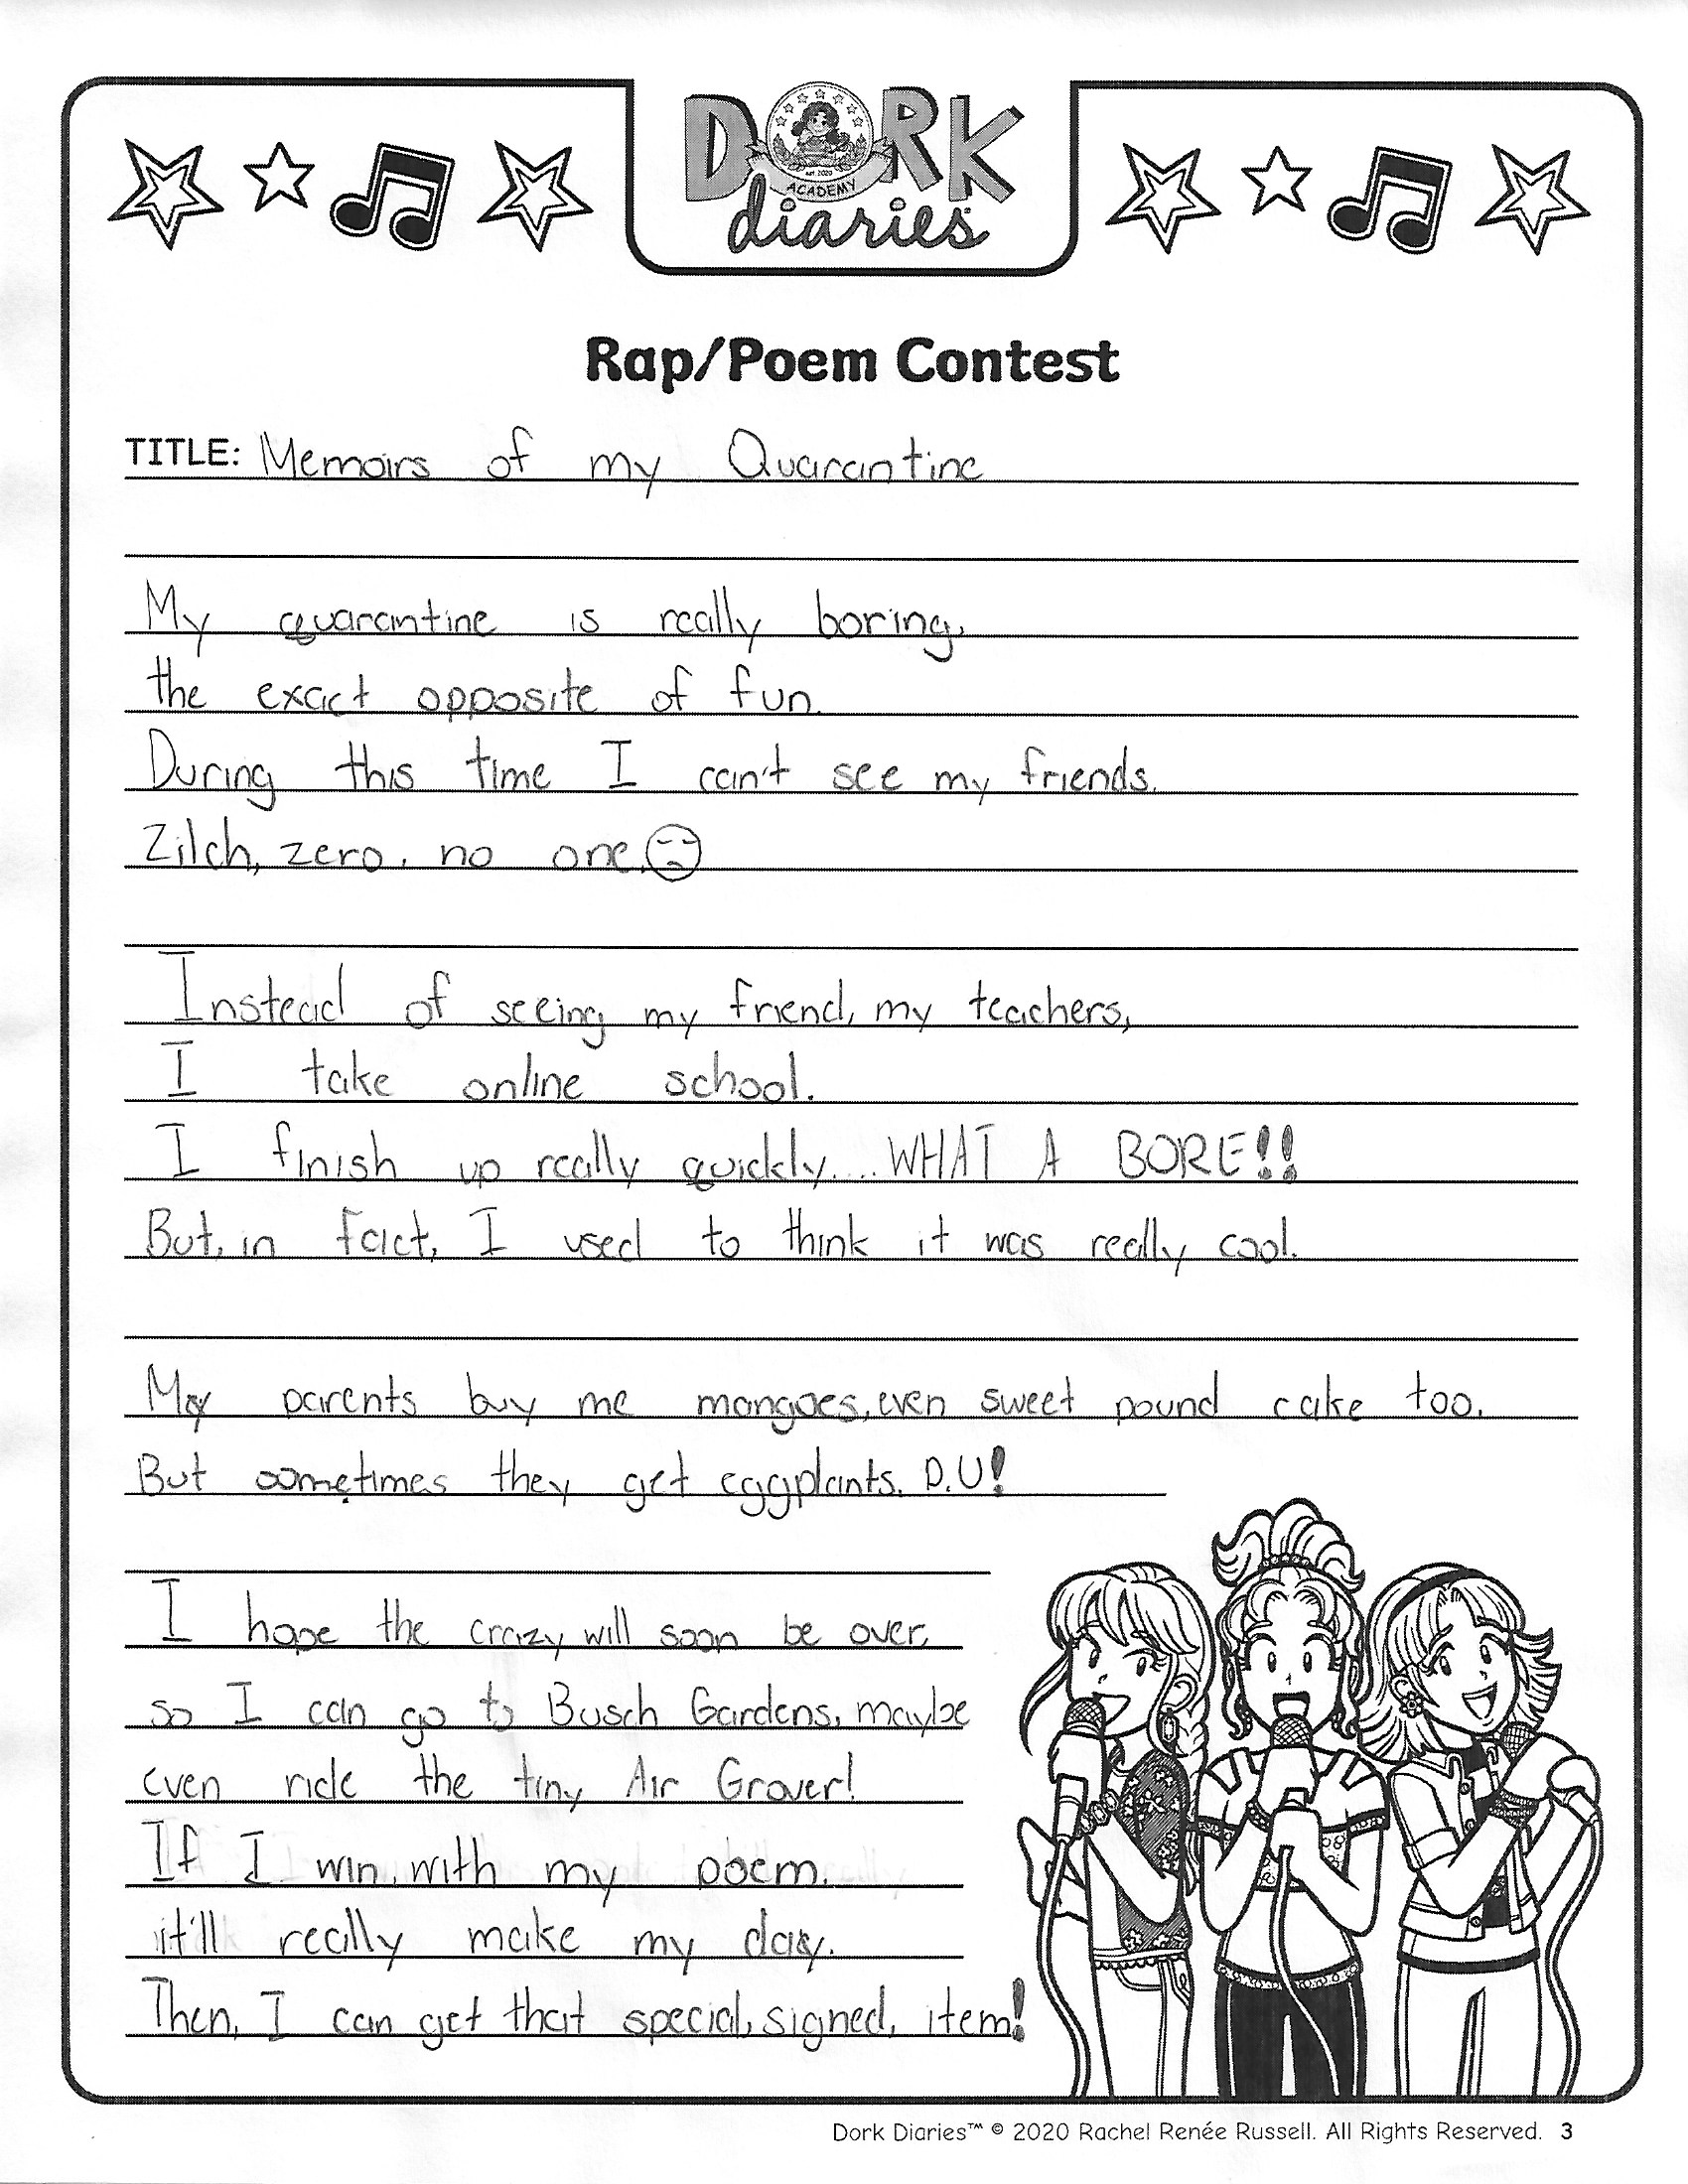 DORK
est. 2020
ACADEMY
diaries
Rap/Poem Contest
TITLE: Memoirs of my Quarantine
My quarantine is really boring,
the exact opposite of fun.
During this time I can't see my friends.
Zilch, zero, no one.
Instead of seeing my friend, my teachers,
I take online school.
I finish up really quickly....WHAT A BORE!!
But, in fact, I used to think it was really cool.
My parents buy me mangoes, even sweet pound cake too.
But sometimes they get eggplants. P.U!
I hope the crazy will soon be over,
so I can go to Busch Gardens, maybe
even ride the tiny Air Grover!
If I win, with my poem,
it'll really make my day.
Then, I can get that special, signed, item!
Dork Diaries™ © 2020 Rachel Renée Russell. All Rights Reserved. 3